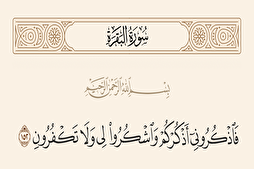 سُورَةُ البَقَرَةِ
بِسْمِ اللَّهِ الرَّحْمَٰنِ الرَّحِيمِ
فَٱذْكُرُونِىٓ أَذْكُرْكُمْ وَٱشْكُرُوا۟ لِى وَلَا تَكْفُرُونِ ١٥٢